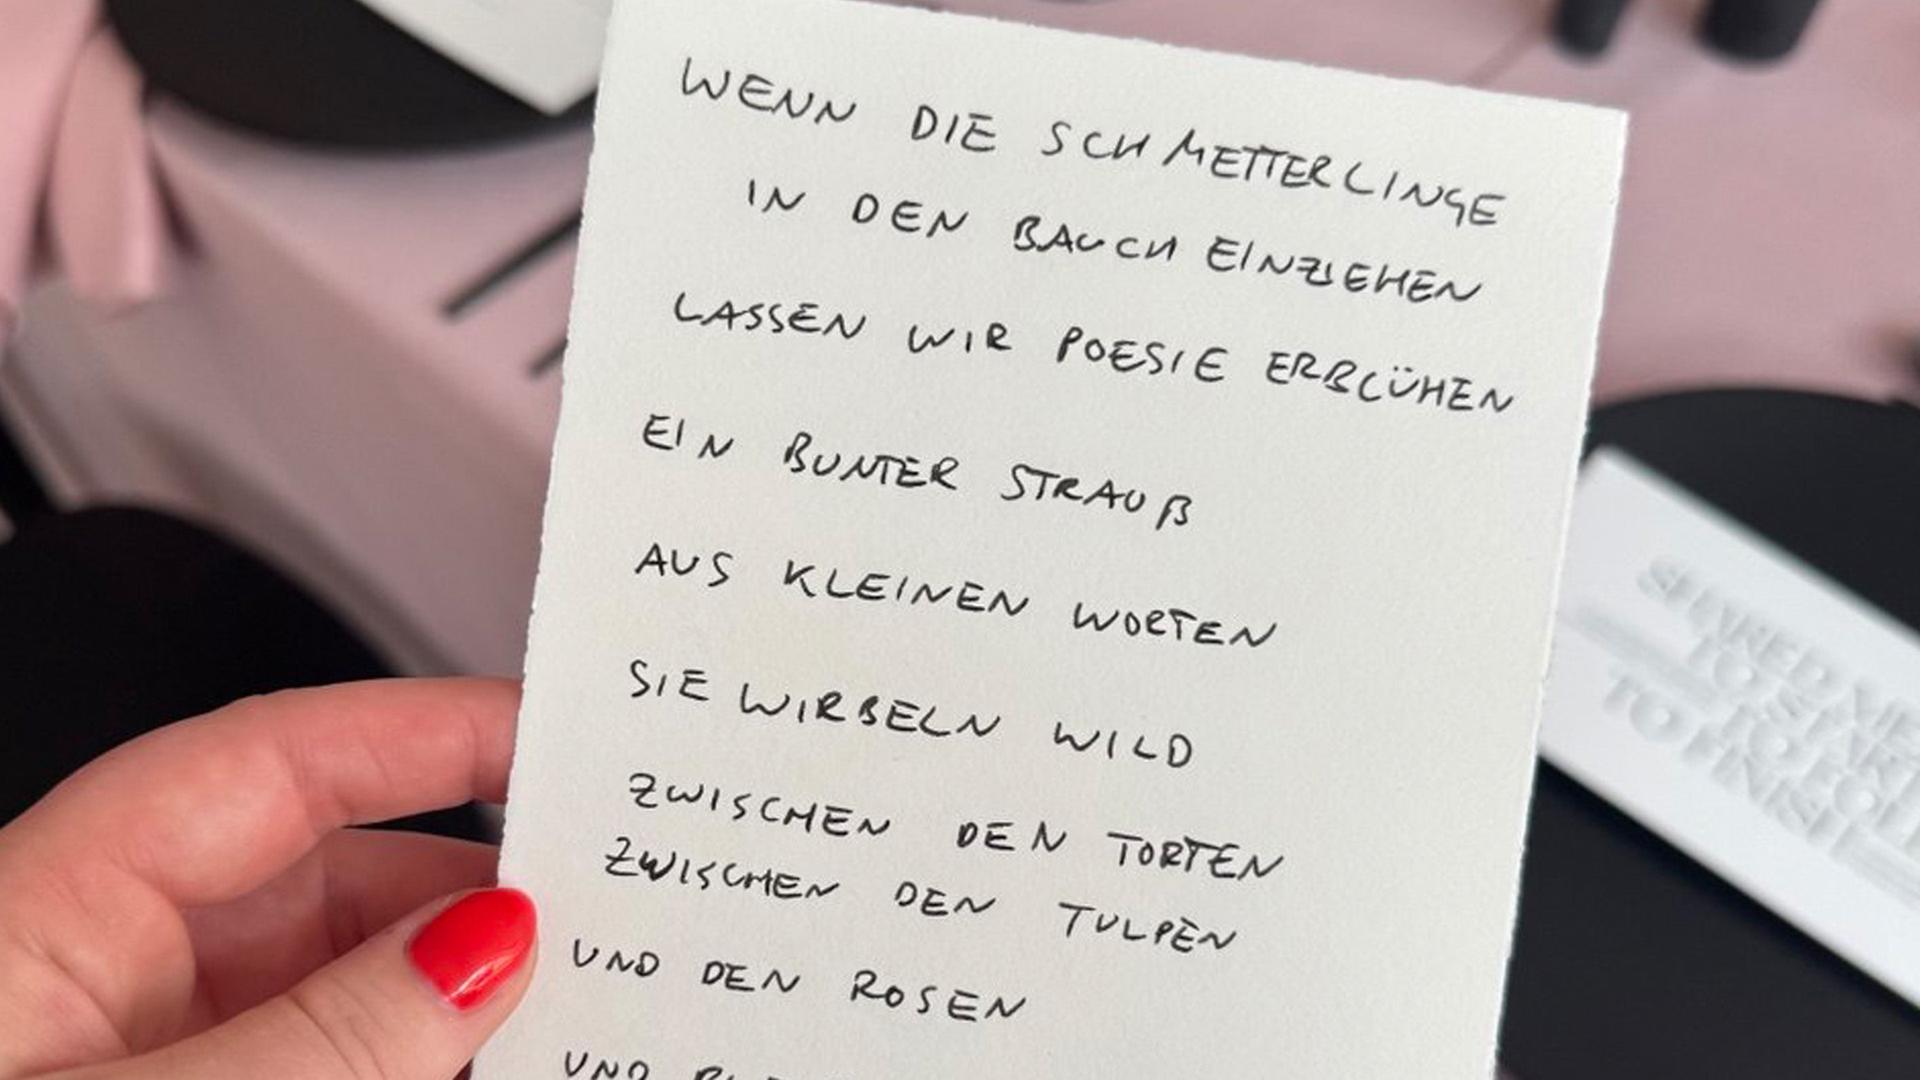 WENN DIE SCHMETTERLINGE
IN DEN BAUCH EINZIEHEN
LASSEN WIR POESIE ERBLÜHEN
EIN BUNTER STRAUß
AUS KLEINEN WORTEN
SIE WIRBELN WILD
ZWISCHEN DEN TORTEN
ZWISCHEN DEN TULPEN
UND DEN ROSEN
UND
TO START
TO
TO FINISH